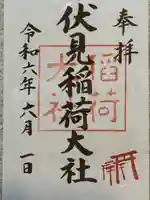 奉拝
伏見稲荷大社
令和六年六月一日
稲荷
大社